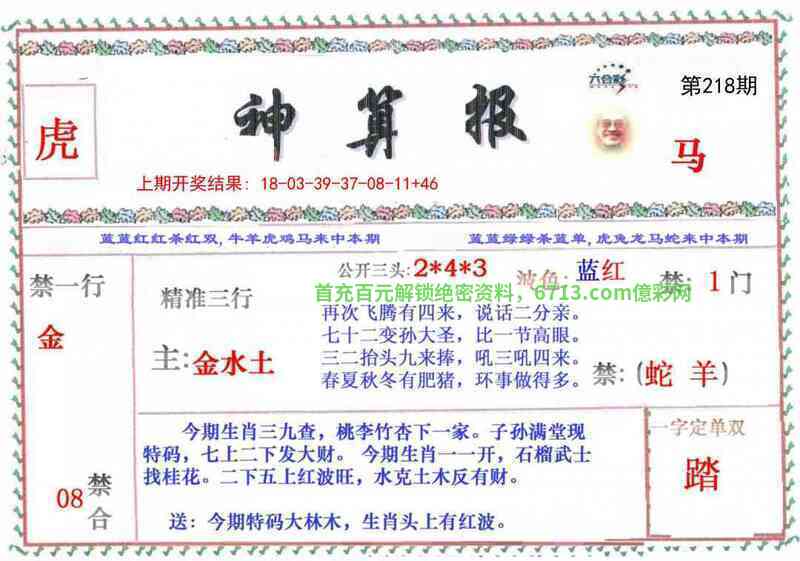 六合彩
第218期
虎
神算报
马
上期开奖结果: 18-03-39-37-08-11+46
蓝蓝红红杀红双, 牛羊虎鸡马来中本期
蓝蓝绿绿杀蓝单, 虎兔龙马蛇来中本期
禁一行
金
08
禁合
精准三行
主:金水土
公开三头:2*4*3
波色: 蓝红
禁: 1门
首充百元解锁绝密资料, 6713.com億彩网
再次飞腾有四来，说话二分亲。
七十二变孙大圣，比一节高眼。
三二抬头九来捧，吼三吼四来。
春夏秋冬有肥猪，环事做得多。
禁:(蛇 羊)
今期生肖三九查，桃李竹杏下一家。子孙满堂现
特码，七上二下发大财。 今期生肖一一开，石榴武士
找桂花。二下五上红波旺，水克土木反有财。
送：今期特码大林木，生肖头上有红波。
一字定单双
踏